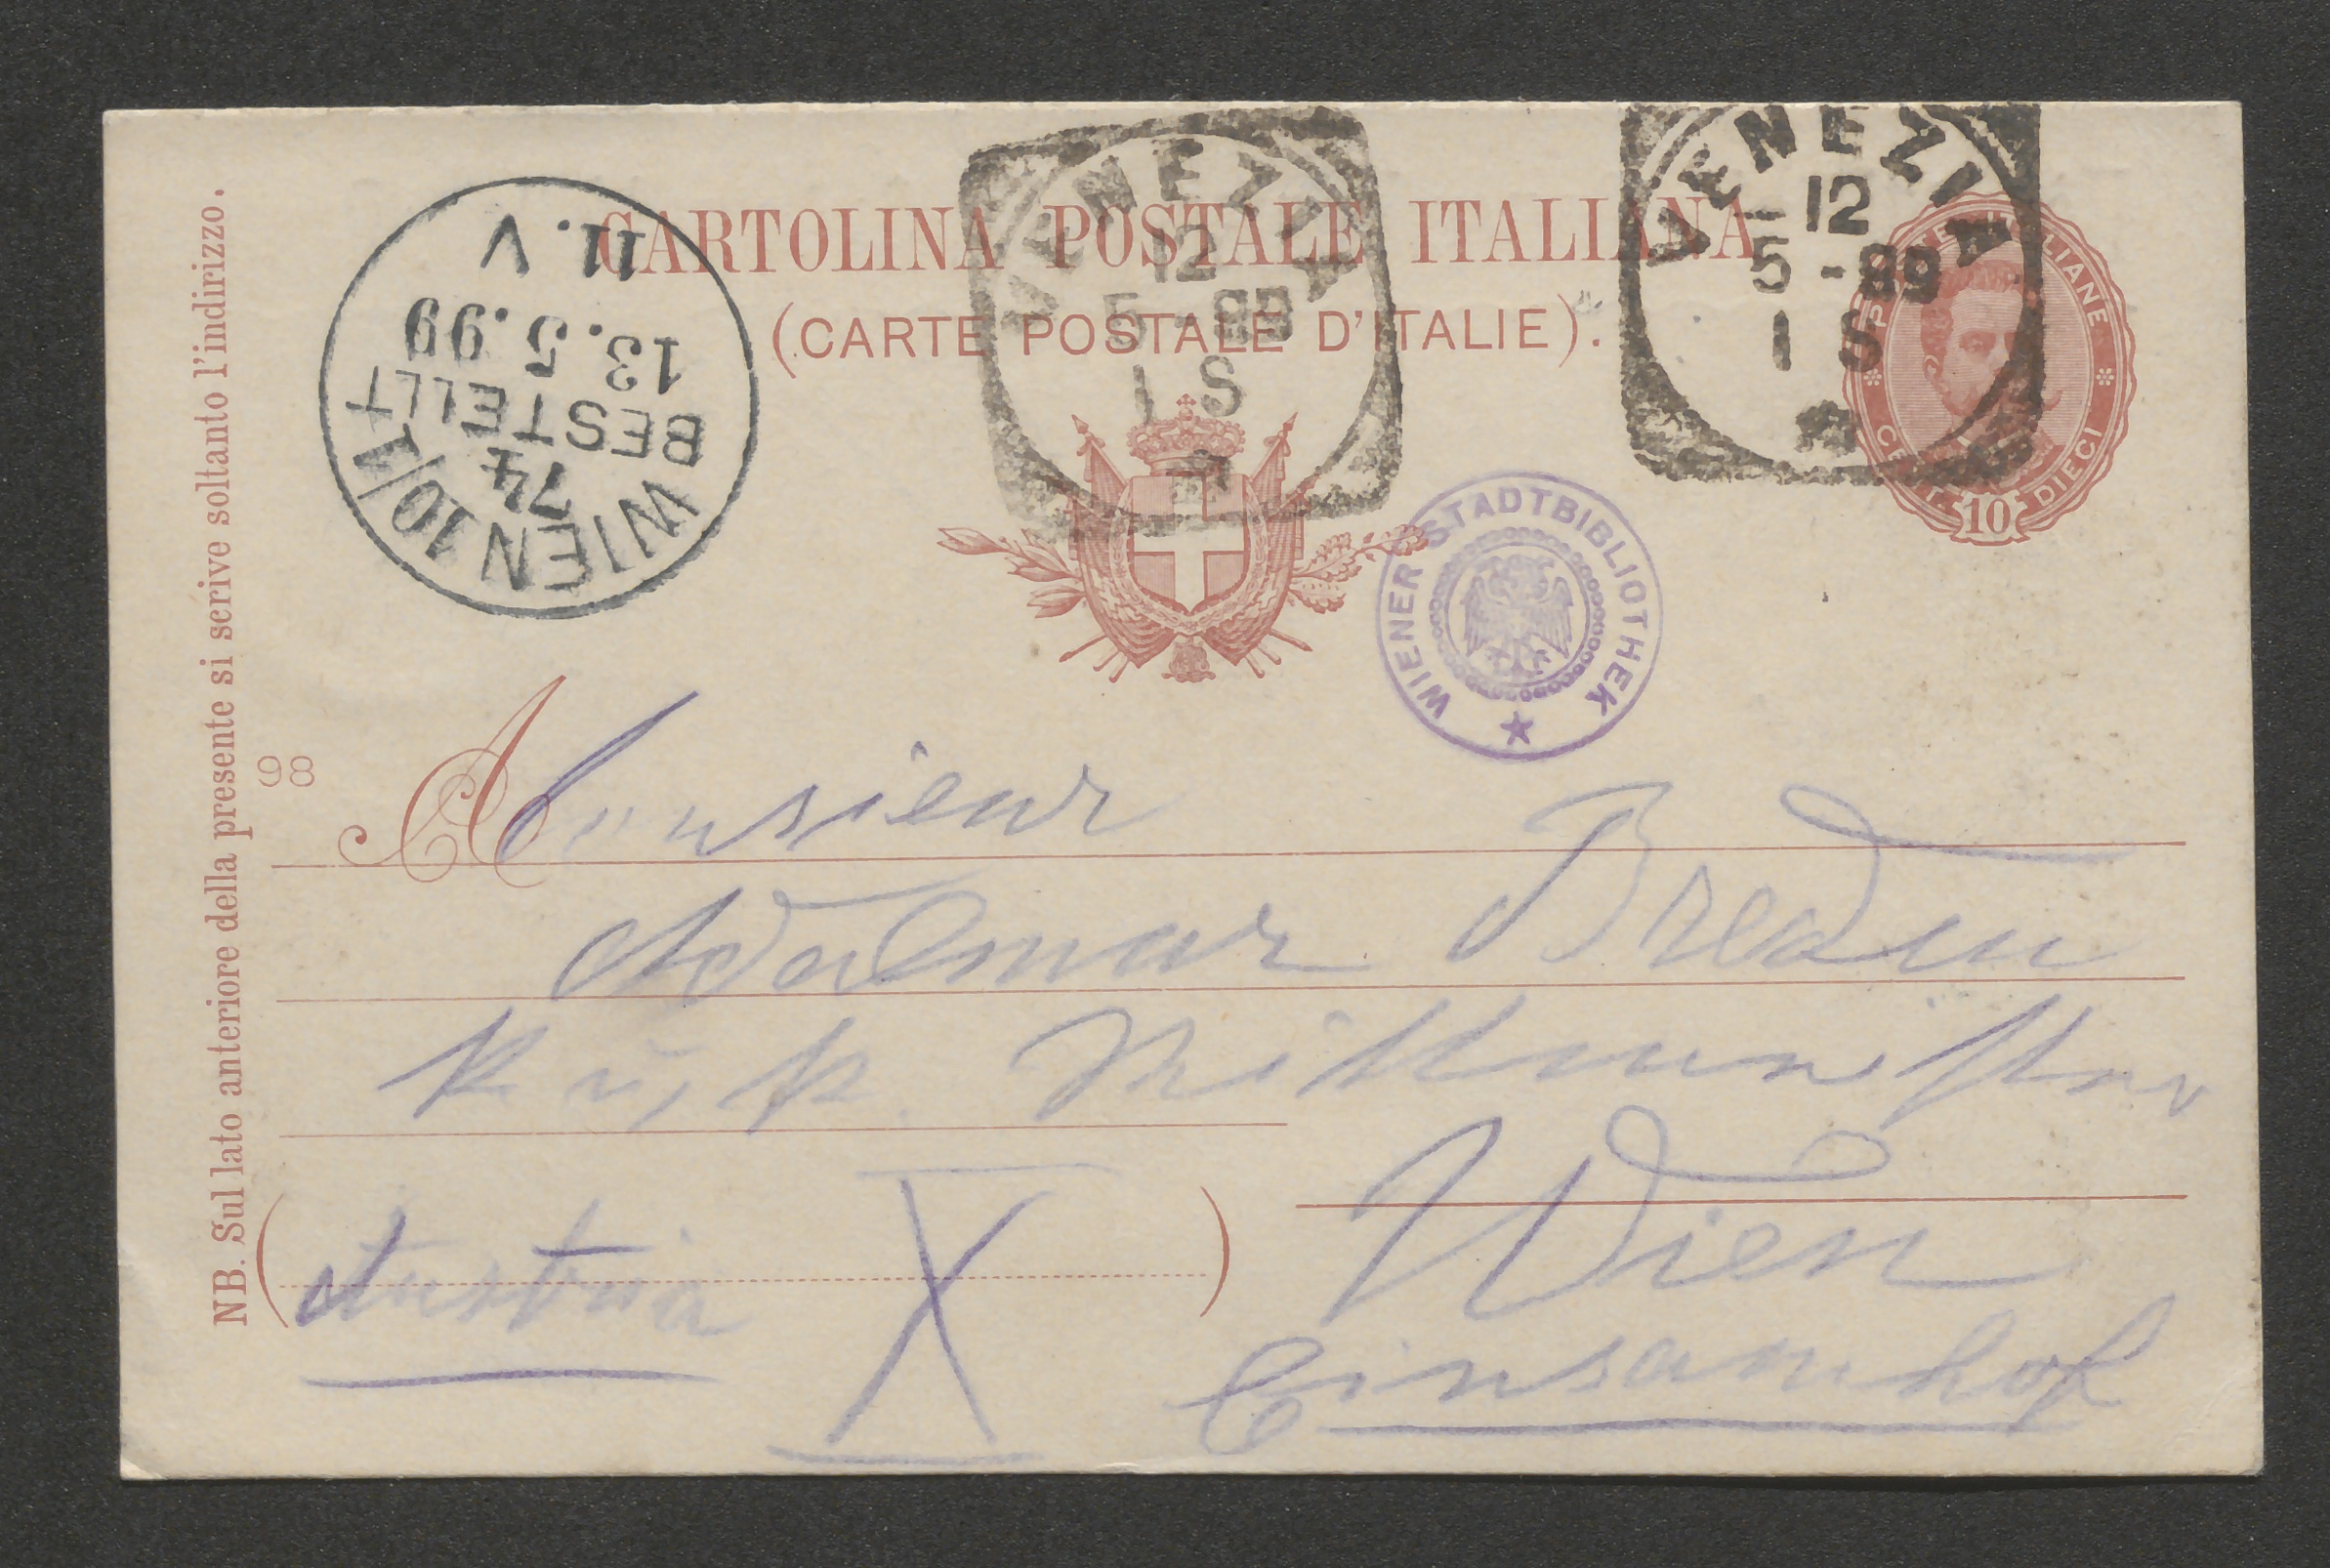 CARTOLINA POSTALE ITALIANA
(CARTE POSTALE D'ITALIE).
VENEZIA
12
5 - 99
1 S
VENEZIA
12
5 - 99
1 S
POSTE ITALIANE
CENT. 10 DIECI
WIEN 10/1
74
BESTELLT
13.5.99
11.V
WIENER STADTBIBLIOTHEK
NB. Sul lato anteriore della presente si scrive soltanto l'indirizzo.
98
A
Monsieur
Adalmar Bredin
k. u. k. Rittmeister
Wien
(Austria) X
Einsamhof